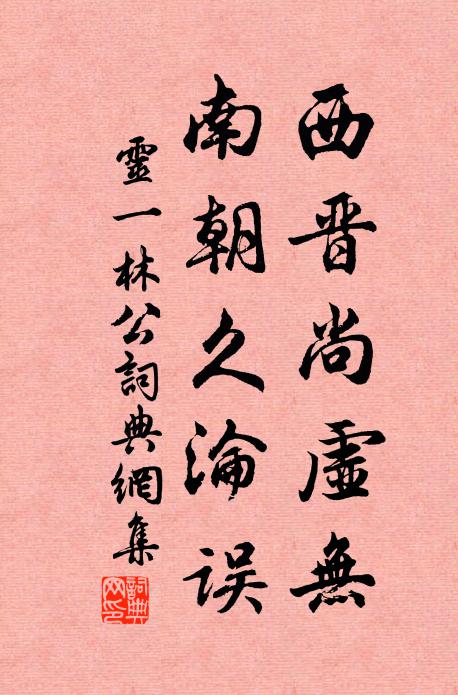 西晋尚虛無
南朝久淪误
靈一林公詞典網集
詞典網印